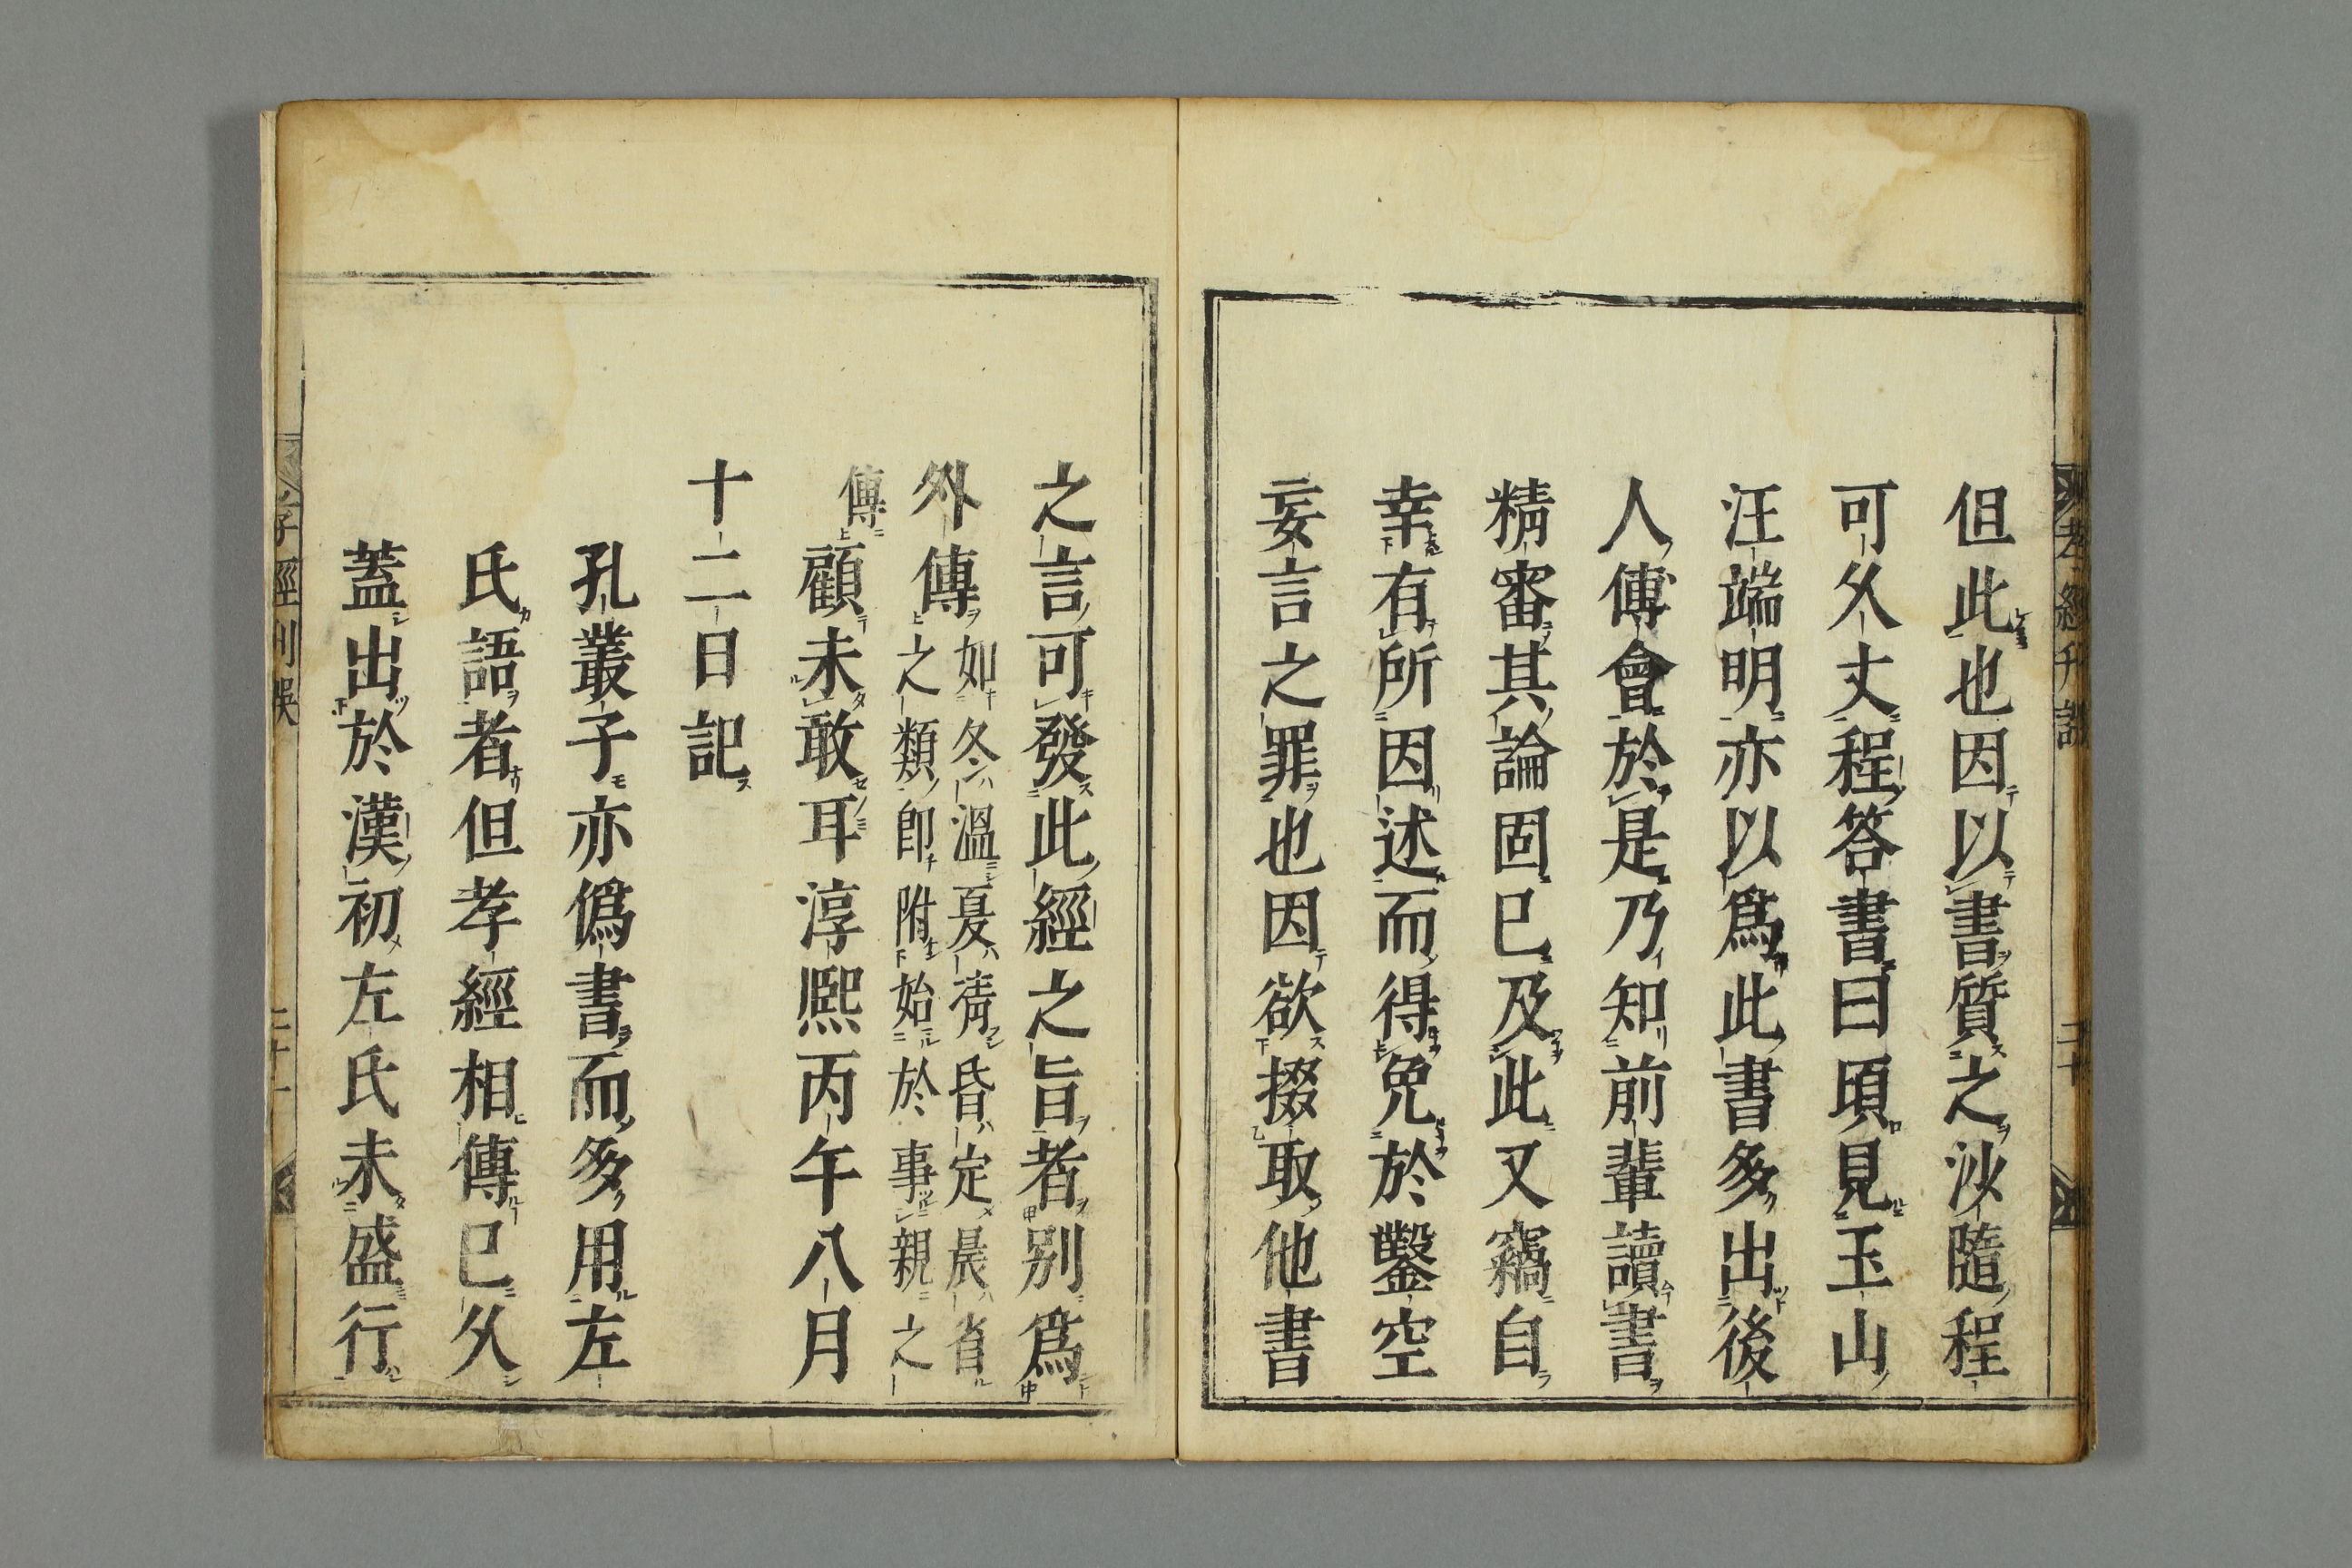 但此也因以書質之沙隨程
可久丈程答書曰頃見玉山
汪端明亦以爲此書多出後
人傅會於是乃知前輩讀書
精審其論固已及此又竊自
幸有所因述而得免於鑿空
妄言之罪也因欲掇取他書
之言可發此經之旨者別爲
外傳如冬溫夏凊昏定晨省
之類即附始於事親之
傳顧未敢耳淳熙丙午八月
十二日記
孔叢子亦僞書而多用左
氏語者但孝經相傳已久
蓋出於漢初左氏未盛行
孝經刊誤
二十
孝經刊誤
二十一